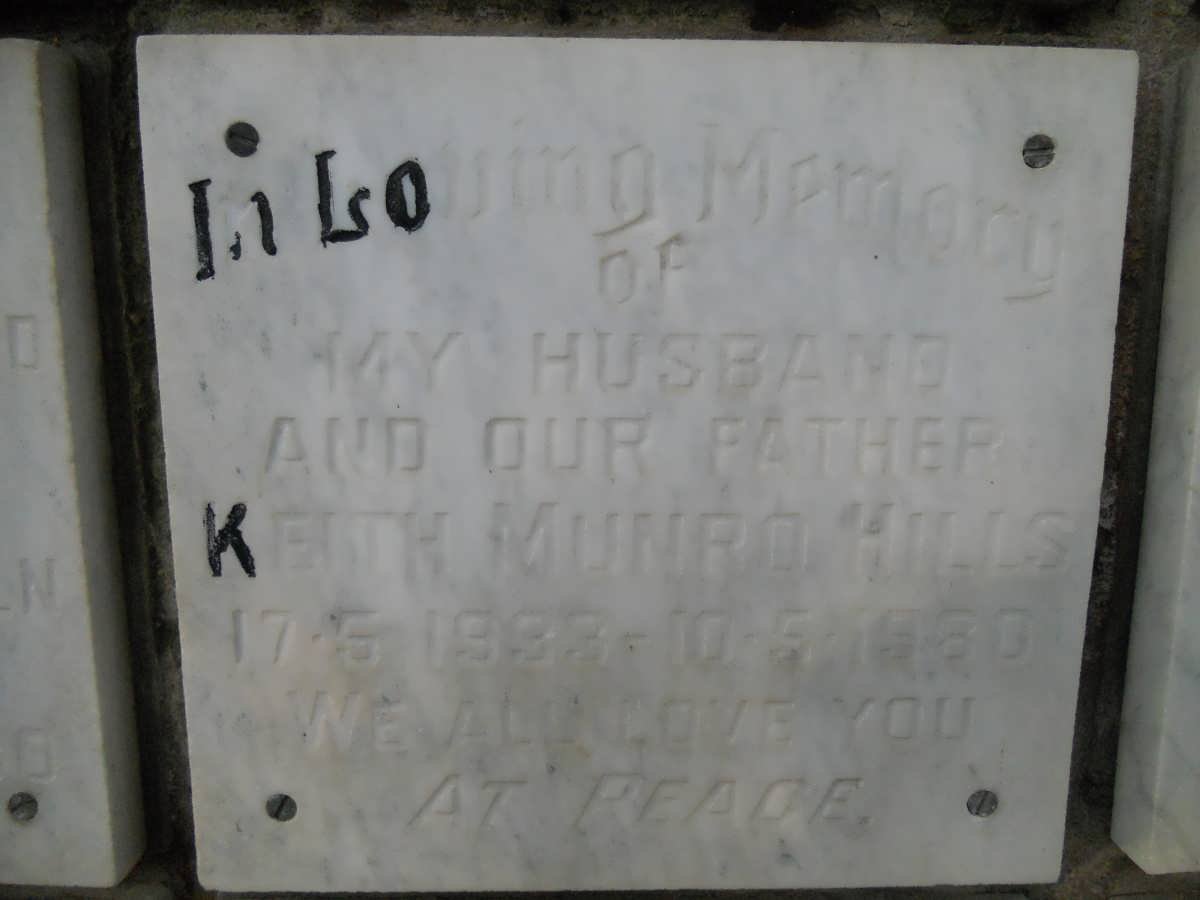 In Loving Memory
of
MY HUSBAND
AND OUR FATHER
KEITH MUNRO HILLS
17·5 1933-10·5·1980
WE ALL LOVE YOU
AT PEACE.
D
LN